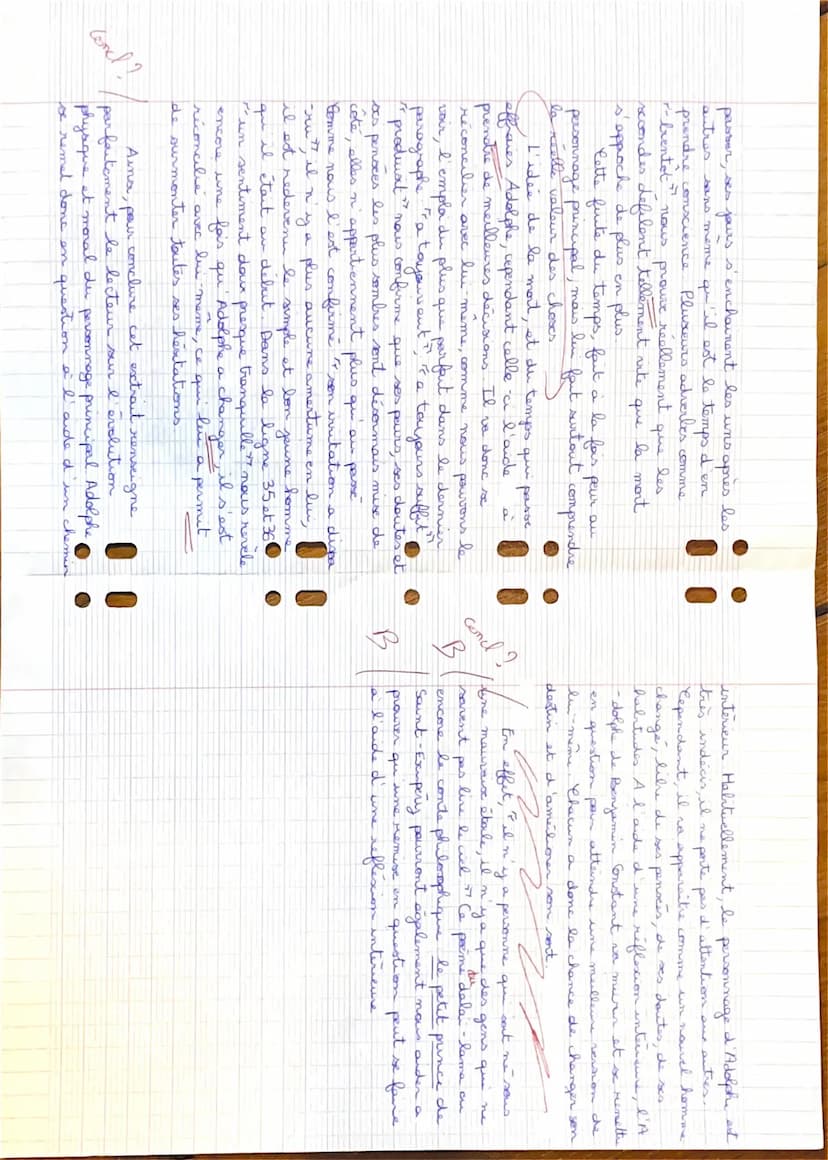 passer, ses jours s'enchainent les uns après les
autres sans même qu'il est le temps d'en
prendre conscience Plusieurs adverbes comme
"bientôt" nous prouve réellement que les
secondes défilent tellement vite que la mort
s'approche de plus en plus
Cette fuite du temps, fait a la fois peur au
personnage principal, mais le fait surtout comprendre
la réelle valeur des choses
L'idée de la mort, et du temps qui passe
effraies Adolphe, cependant celle-ci l'aide à
prendre de meilleures décisions. Il va donc se
réconcilier avec lui-même, comme nous pouvons le
voir, l'emploi du plus que parfait dans le dernier
paragraphe "a toujours eut", "a toujours suffit"
"produisit" nous confirme que ses peurs, ses doutes et
ses pensées les plus sombres sont désormais mise de
côté, elles n'appartiennent plus qu'au passé
Comme nous l'est confirmé "son irritation a dispa
-ru", il n'y a plus aucune amertume en lui,
il est redevenu le simple et bon jeune homme
qu'il était au début. Dans la ligne 35 et 36
"un sentiment doux presque tranquille" nous révèle
encore une fois qu'Adolphe a changer, il s'est
réconcilié avec lui-même, ce qui lui a permit
de surmonter toutes ses hésitations
Concl ?
Ainsi, pour conclure cet extrait renseigne
parfaitement le lecteur sur l'évolution
physique et moral du personnage principal Adolphe
se remet donc en question à l'aide d'un chemin
intérieur Habituellement, le personnage d'Adolphe est
très indécis, il ne porte pas d'attention aux autres.
Cependant, il va apparaître comme un nouvel homme
changé, libre de ses pensées, de ses doutes, de ses
habitudes A l'aide d'une réflexion intérieure, l'A
-dolphe de Benjamin Constant va murir et se remettre
en question pour atteindre une meilleure version de
lui-même. Chacun a donc la chance de changer son
destin et d'améliorer son sort.
Concl ?
En effet, "il n'y a personne qui soit né sous
B
une mauvaise étoile, il n'y a que des gens qui ne
savent pas lire le ciel" Ce poème du dalaï-lama ou
encore le conte philosophique le petit prince de
Saint-Exupéry pourront également nous aider a
B
prouver qu'une remise en question peut se faire
à l'aide d'une réflexion intérieure